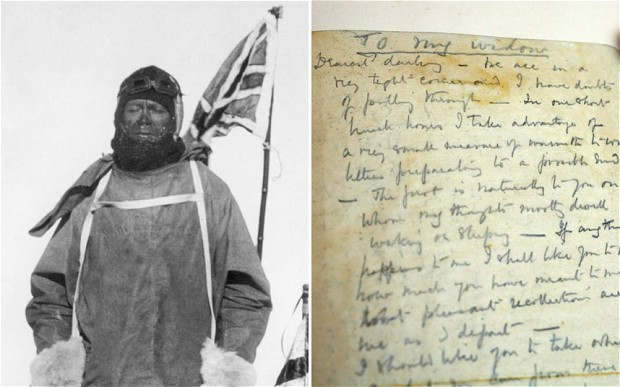 To my widow
Dearest darling – we are in a
very tight corner and I have doubts
of pulling through – In our short
lunch hours I take advantage of
a very small measure of warmth to
letters preparatory to a possible end
– The first is naturally to you on
whom my thoughts mostly dwell
waking or sleeping – If anything
happens to me I shall like you to
know how much you have meant to me
pleasant recollections are
me as I depart –
I should like you to take what
from these